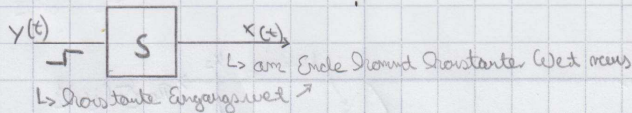 y(t) S x(t)
↳ am Ende kommt konstanter Wet raus
↳ konstante Eingangswet ↗